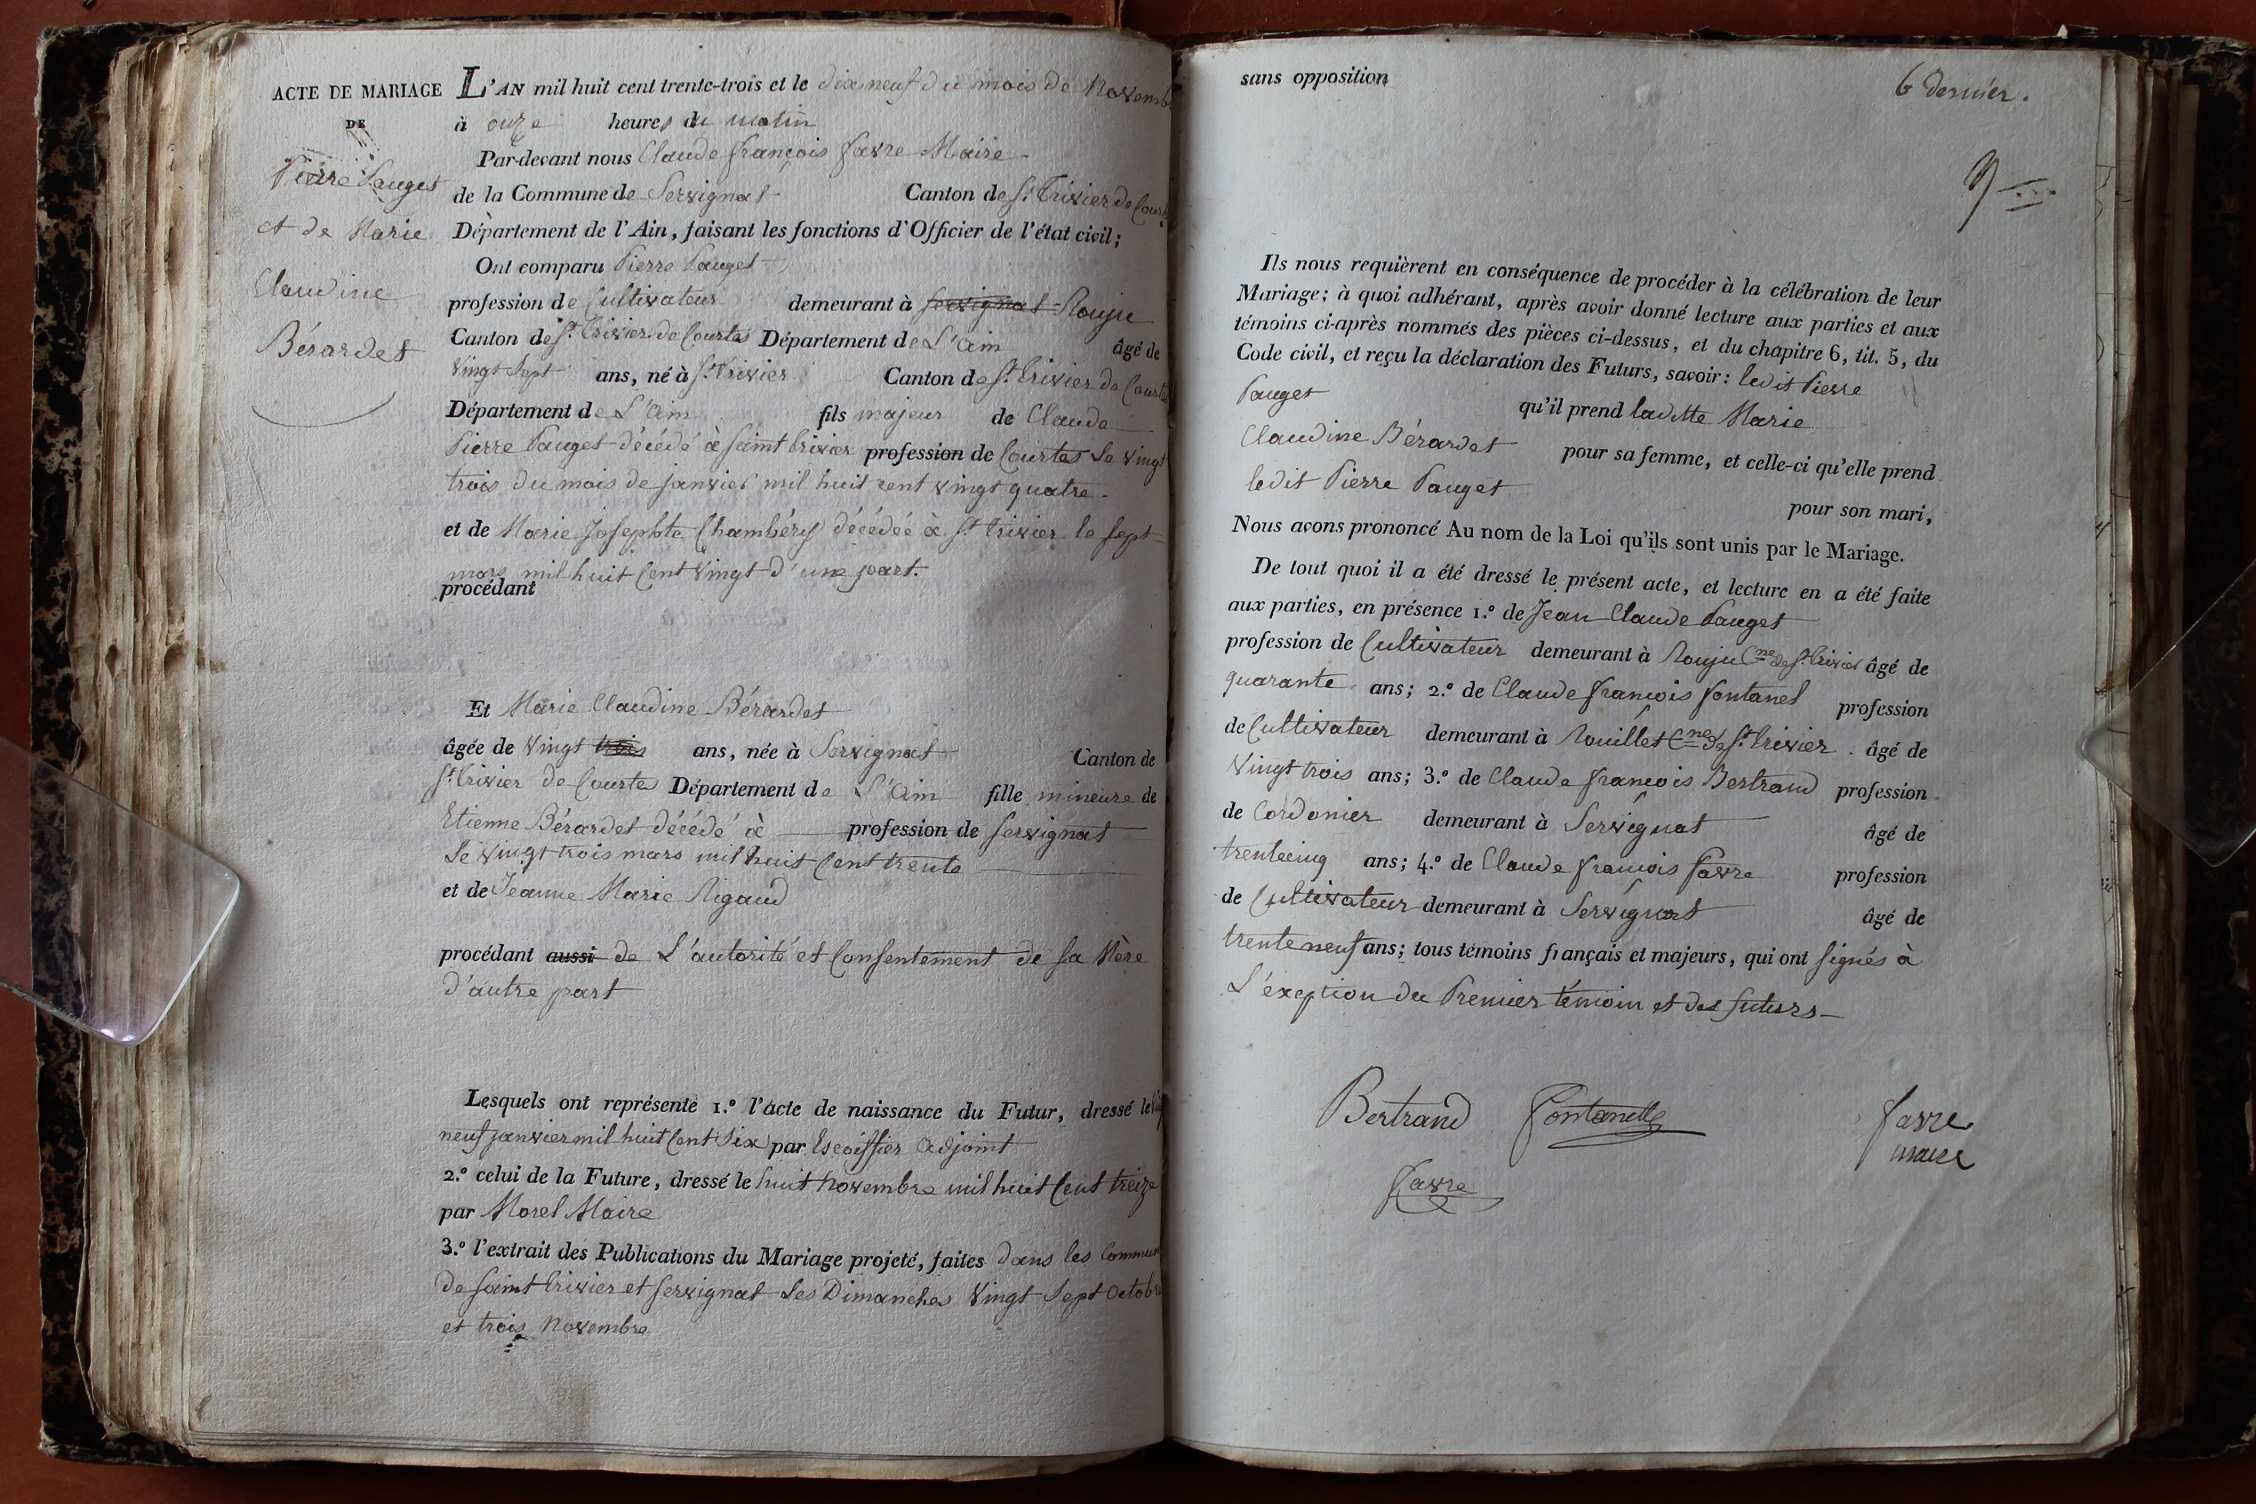 ACTE DE MARIAGE
DE
Pierre Pauget
et de Marie
Claudine
Bérardet
L'AN mil huit cent trente-trois et le dix neuf du mois de Novemb
à onze heures du matin
Par-devant nous Claude françois favre Maire
de la Commune de Servignat Canton de St. Trivier de Court
Département de l'Ain, faisant les fonctions d'Officier de l'état civil;
Ont comparu Pierre Pauget
profession de Cultivateur demeurant à servignat Rouju
Canton de St. Trivier de Courtes Département de L'ain âgé de
Vingt Sept ans, né à St. Trivier Canton de St. Trivier de Courtes
Département de L'ain fils majeur de Claude
Pierre Pauget décédé à saint Trivier profession de Courtes Le vingt
trois du mois de janvier mil huit cent vingt quatre
et de Marie Josephte Chambéry décédée à St. Trivier le sept
mars mil huit Cent Vingt d'une part.
procédant
Et Marie Claudine Bérardet
âgée de Vingt trois ans, née à Servignat Canton de
St. Trivier de Courtes Département de L'ain fille mineure de
Etienne Bérardet décédé à profession de servignat
Le vingt trois mars mil huit Cent trente
et de Jeanne Marie Rigaud
procédant aussi de L'autorité et Consentement de sa Mère
d'autre part
Lesquels ont représenté 1.º l'acte de naissance du Futur, dressé le Vin
neuf janvier mil huit Cent Six par Escoiffier adjoint
2.º celui de la Future, dressé le huit novembre mil huit Cent treize
par Morel Maire
3.º l'extrait des Publications du Mariage projeté, faites dans les Commun
de saint Trivier et servignat Les Dimanches Vingt Sept Octobre
et trois Novembre
sans opposition
6 dernier.
Ils nous requièrent en conséquence de procéder à la célébration de leur
Mariage; à quoi adhérant, après avoir donné lecture aux parties et aux
témoins ci-après nommés des pièces ci-dessus, et du chapitre 6, tit. 5, du
Code civil, et reçu la déclaration des Futurs, savoir: ledit Pierre
Pauget qu'il prend laditte Marie
Claudine Bérardet pour sa femme, et celle-ci qu'elle prend
ledit Pierre Pauget pour son mari,
Nous avons prononcé Au nom de la Loi qu'ils sont unis par le Mariage.
De tout quoi il a été dressé le présent acte, et lecture en a été faite
aux parties, en présence 1.º de Jean Claude Pauget
profession de Cultivateur demeurant à Rouju Cne de St. Trivier âgé de
quarante ans; 2.º de Claude françois fontanel profession
de Cultivateur demeurant à Rouillet Cne de St. Trivier âgé de
Vingt trois ans; 3.º de Claude françois Bertrand profession
de Cordonier demeurant à Servignat âgé de
trentecinq ans; 4.º de Claude françois favre profession
de Cultivateur demeurant à Servignat âgé de
trente neuf ans; tous témoins français et majeurs, qui ont signés à
L'exeption du Premier témoin et des futurs
Bertrand Fontanelle favre
maire
Favre